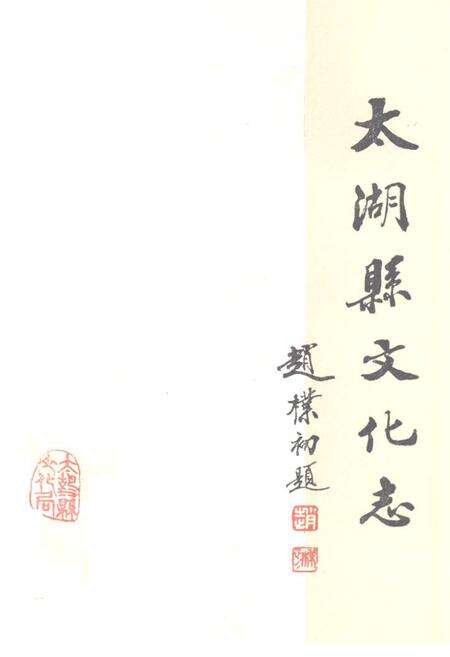 太湖縣文化志
趙樸初題
趙
樸初
太湖縣
文化局